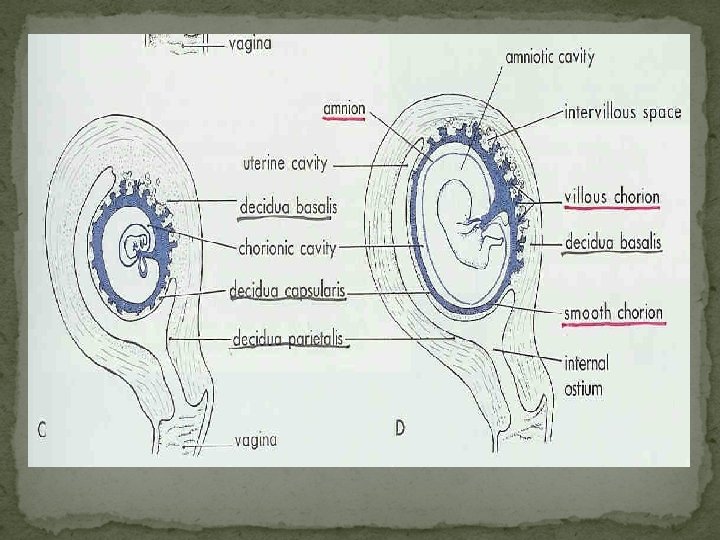 vagina
amniotic cavity
amnion
intervillous space
uterine cavity
villous chorion
decidua basalis
decidua basalis
chorionic cavity
decidua capsularis
smooth chorion
decidua parietalis
internal
ostium
C
D
vagina